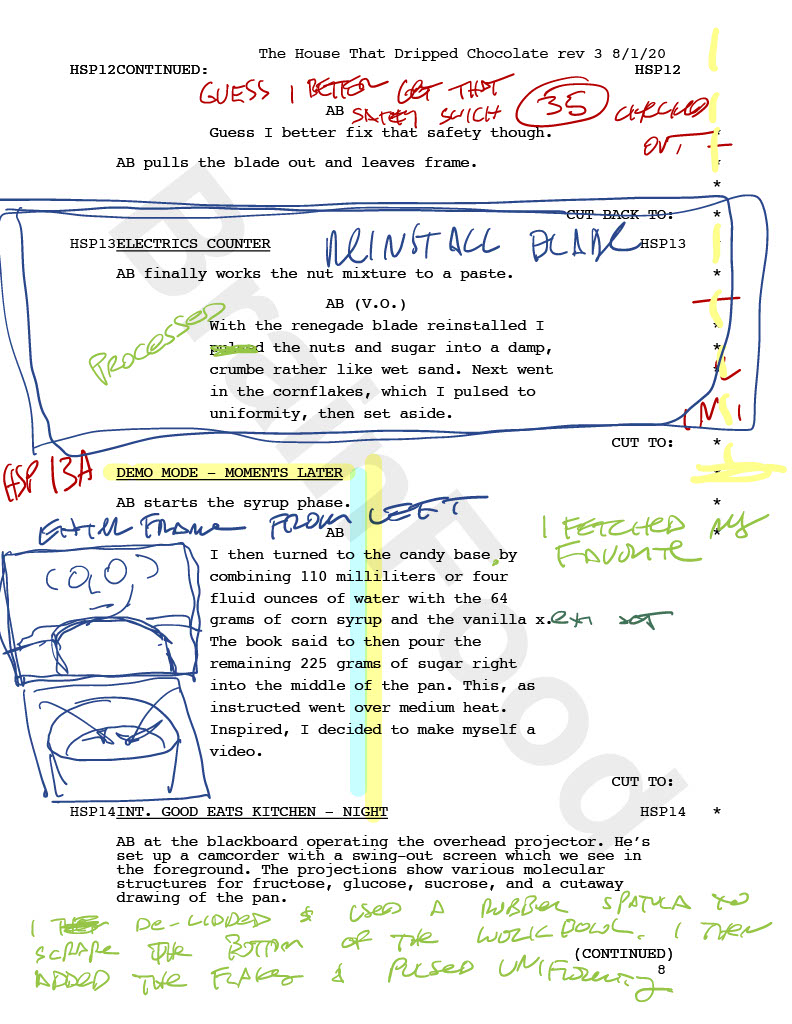 The House That Dripped Chocolate rev 3 8/1/20
HSP12CONTINUED: HSP12
GUESS I BETTER GET THAT
AB SAFETY SWICH 35 CHECKED
Guess I better fix that safety though. *
OUT
AB pulls the blade out and leaves frame. *
*
CUT BACK TO: *
HSP13ELECTRICS COUNTER REINSTALL BLADE HSP13 *
AB finally works the nut mixture to a paste. *
AB (V.O.)
With the renegade blade reinstalled I *
PROCESSED
pulsed the nuts and sugar into a damp, *
crumbe rather like wet sand. Next went *
in the cornflakes, which I pulsed to
uniformity, then set aside.
CUT TO: *
HSP 13A
DEMO MODE - MOMENTS LATER *
AB starts the syrup phase. *
ENTER FRAME FROM LEFT *
AB *
I FETCHED MY
FAVORITE
I then turned to the candy base by
combining 110 milliliters or four
fluid ounces of water with the 64
grams of corn syrup and the vanilla x.
The book said to then pour the
remaining 225 grams of sugar right
into the middle of the pan. This, as
instructed went over medium heat.
Inspired, I decided to make myself a
video.
CUT TO:
HSP14INT. GOOD EATS KITCHEN - NIGHT HSP14 *
AB at the blackboard operating the overhead projector. He's
set up a camcorder with a swing-out screen which we see in
the foreground. The projections show various molecular
structures for fructose, glucose, sucrose, and a cutaway
drawing of the pan.
I DE-LIDDED & USED A RUBBER SPATULA TO
SCRAPE THE BOTTOM OF THE WORK BOWL. I THEN
(CONTINUED)
ADDED THE FLAKES & PULSED UNIFORMITY
8
BrainFood